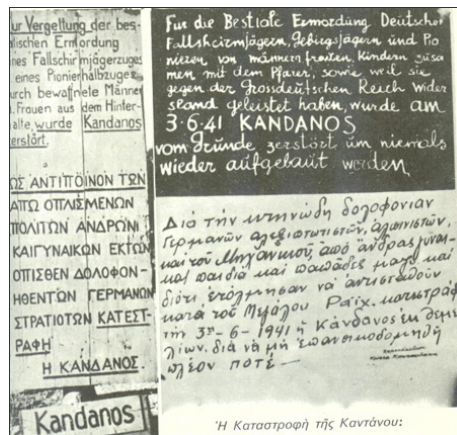 ur Vergeltung der bes-
alischen Ermordung
nes Fallschirmjägerzuges
eines Pionierhalbzuges
urch bewaffnete Männer
. Frauen aus dem Hinter-
alte, wurde Kandanos
erstört.
ΩΣ ΑΝΤΙΠΟΙΝΟΝ ΤΩΝ
ΑΠΩ ΟΠΛΙΣΜΕΝΩΝ
ΠΟΛΙΤΩΝ ΑΝΔΡΩΝ
ΚΑΙ ΓΥΝΑΙΚΩΝ ΕΚ ΤΩΝ
ΟΠΙΣΘΕΝ ΔΟΛΟΦΟΝ-
ΗΘΕΝΤΩΝ ΓΕΡΜΑΝΩΝ
ΣΤΡΑΤΙΩΤΩΝ ΚΑΤΕΣΤ-
ΡΑΦΗ
Η ΚΑΝΔΑΝΟΣ.
Kandanos
Für die Bestiale Ermordung Deutscher
Fallsheirmjägern, Gebirgsjägern und Pio
nieren von männern, frauen, Kindern zusa
men mit dem Pfarrer, sowie weil sie
gegen der Grossdeutschen Reich wider
stand geleistet haben, wurde am
3·6.41 KANDANOS
vom Gründe zerstört um niemals
wieder aufgebaut werden
Διά τήν κτηνώδη δολοφονίαν
Γερμανών αλεξιπτωτιστών, αλπινιστών,
καί του Μηχανικού, από άνδρας, γυναί-
και παιδιά καί παπάδες μαζύ καί
διότι ετόλμησαν νά αντισταθούν
κατά του Μεγάλου Ράιχ, κατεστρά
τήν 3ην-6-1941 η Κάνδανος εκ θεμε
λίων, διά νά μή επανοικοδομηθή
πλέον ποτέ —
Ἡ Καταστροφή τῆς Καντάνου: